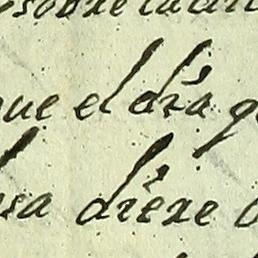 sobre la
que el dia q
sa diere